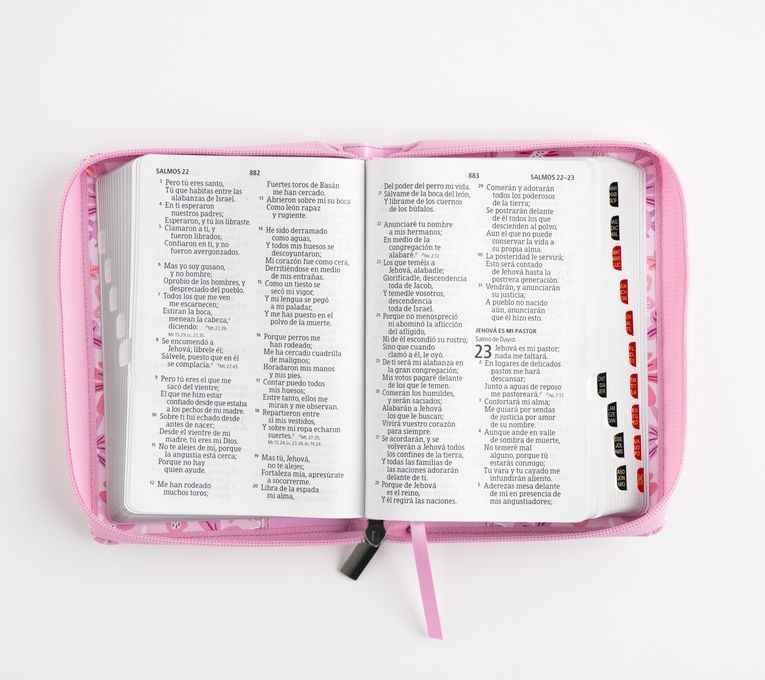 SALMOS 22
882
3 Pero tú eres santo,
Tú que habitas entre las
alabanzas de Israel.
4 En ti esperaron
nuestros padres;
Esperaron, y tú los libraste.
5 Clamaron a ti, y
fueron librados;
Confiaron en ti, y no
fueron avergonzados.
6 Mas yo soy gusano,
y no hombre;
Oprobio de los hombres, y
despreciado del pueblo.
7 Todos los que me ven
me escarnecen;
Estiran la boca,
menean la cabeza,
diciendo: Mt. 27.39;
Mr. 15.29; Lc. 23.35.
8 Se encomendó a
Jehová; líbrele él;
Sálvele, puesto que en él
se complacía. Mt. 27.43.
9 Pero tú eres el que me
sacó del vientre;
El que me hizo estar
confiado desde que estaba
a los pechos de mi madre.
10 Sobre ti fui echado desde
antes de nacer;
Desde el vientre de mi
madre, tú eres mi Dios.
11 No te alejes de mí, porque
la angustia está cerca;
Porque no hay
quien ayude.
12 Me han rodeado
muchos toros;
Fuertes toros de Basán
me han cercado.
13 Abrieron sobre mí su boca
Como león rapaz
y rugiente.
14 He sido derramado
como aguas,
Y todos mis huesos se
descoyuntaron;
Mi corazón fue como cera,
Derritiéndose en medio
de mis entrañas.
15 Como un tiesto se
secó mi vigor,
Y mi lengua se pegó
a mi paladar,
Y me has puesto en el
polvo de la muerte.
16 Porque perros me
han rodeado;
Me ha cercado cuadrilla
de malignos;
Horadaron mis manos
y mis pies.
17 Contar puedo todos
mis huesos;
Entre tanto, ellos me
miran y me observan.
18 Repartieron entre
sí mis vestidos,
Y sobre mi ropa echaron
suertes. Mt. 27.35;
Mr. 15.24; Lc. 23.34; Jn. 19.24.
19 Mas tú, Jehová,
no te alejes;
Fortaleza mía, apresúrate
a socorrerme.
20 Libra de la espada
mi alma,
883
SALMOS 22–23
Del poder del perro mi vida.
21 Sálvame de la boca del león,
Y líbrame de los cuernos
de los búfalos.
22 Anunciaré tu nombre
a mis hermanos;
En medio de la
congregación te
alabaré. He. 2.12.
23 Los que teméis a
Jehová, alabadle;
Glorificadle, descendencia
toda de Jacob,
Y temedle vosotros,
descendencia
toda de Israel.
24 Porque no menospreció
ni abominó la aflicción
del afligido,
Ni de él escondió su rostro;
Sino que cuando
clamó a él, le oyó.
25 De ti será mi alabanza en
la gran congregación;
Mis votos pagaré delante
de los que le temen.
26 Comerán los humildes,
y serán saciados;
Alabarán a Jehová
los que le buscan;
Vivirá vuestro corazón
para siempre.
27 Se acordarán, y se
volverán a Jehová todos
los confines de la tierra,
Y todas las familias de
las naciones adorarán
delante de ti.
28 Porque de Jehová
es el reino,
Y él regirá las naciones.
29 Comerán y adorarán
todos los poderosos
de la tierra;
Se postrarán delante
de él todos los que
descienden al polvo,
Aun el que no puede
conservar la vida a
su propia alma.
30 La posteridad le servirá;
Esto será contado
de Jehová hasta la
postrera generación.
31 Vendrán, y anunciarán
su justicia;
A pueblo no nacido
aún, anunciarán
que él hizo esto.
JEHOVÁ ES MI PASTOR
Salmo de David.
23 Jehová es mi pastor;
nada me faltará.
2 En lugares de delicados
pastos me hará
descansar;
Junto a aguas de reposo
me pastoreará. Ap. 7.17.
3 Confortará mi alma;
Me guiará por sendas
de justicia por amor
de su nombre.
4 Aunque ande en valle
de sombra de muerte,
No temeré mal
alguno, porque tú
estarás conmigo;
Tu vara y tu cayado me
infundirán aliento.
5 Aderezas mesa delante
de mí en presencia de
mis angustiadores;